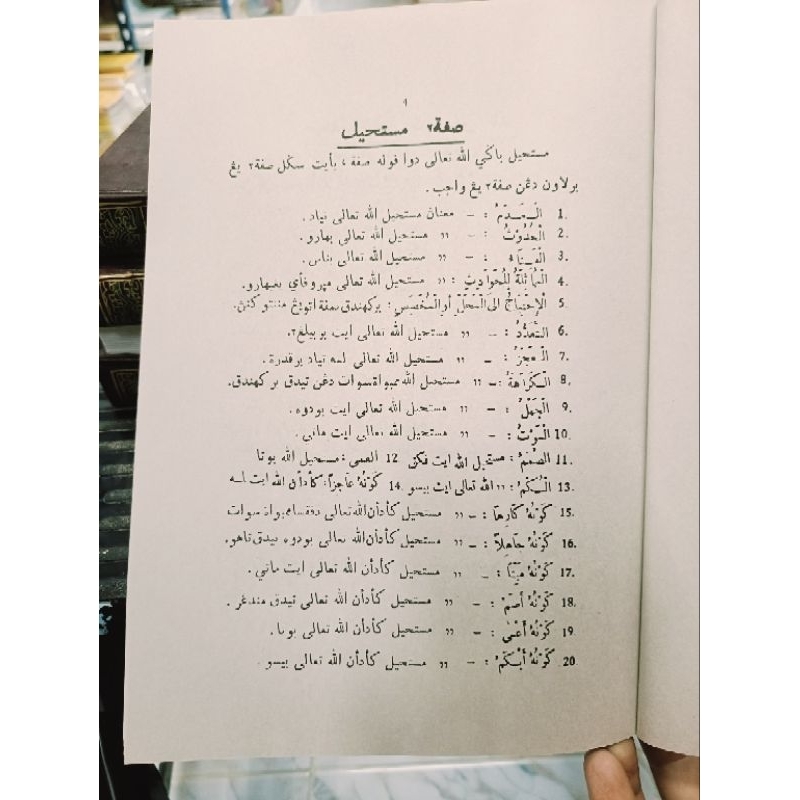 ٤
صفة٢ مستحيل
مستحيل باݢي الله تعالى دوا ڤوله صفة ، يأيت سݢل صفة٢ يڠ
برلاون دڠن صفة٢ يڠ واجب .
1. الْعَدَمُ : — معنان مستحيل الله تعالى تياد .
2. الْحُدُوْثُ : — ,, مستحيل الله تعالى بهارو .
3. الْفَنَاءُ : — ,, مستحيل الله تعالى بناس .
4. الْمُمَاثَلَةُ لِلْحَوَادِثِ : ,, مستحيل الله تعالى مپروڤاي يڠبهارو.
5. الْإِحْتِيَاجُ الى الْمَحَلِّ أَوِ الْمُخَصِّصِ : بركهندق
6. التَّعَدُّدُ : — ,, مستحيل الله تعالى ايت بربيلڠ٢.
7. الْعَجْزُ : — ,, مستحيل الله تعالى لمه تياد برقدرة .
8. الْكَرَاهَةُ : — ,, مستحيل الله ممبواة سوات دڠن تيدق بركهندق.
9. الْجَهْلُ : — ,, مستحيل الله تعالى ايت بودوه .
10. الْمَوْتُ : — ,, مستحيل الله تعالى ايت ماتي .
11. الصَّمَمُ : مستحيل الله ايت ڤكق 12 العمى : مستحيل الله بوتا
13. الْبُكْمُ : ,, الله تعالى ايت بيسو .14 كَوْنُهُ عَاجِزًا : كأدأن الله ايت لمه
15. كَوْنُهُ كَارِهًا : — ,, مستحيل كأدأن الله تعالى ممبواة سوات
16. كَوْنُهُ جَاهِلًا : — ,, مستحيل كأدأن الله تعالى بودوه تيدق تاهو.
17. كَوْنُهُ مَيِّتًا : — ,, مستحيل كأدأن الله تعالى ايت ماتي .
18. كَوْنُهُ أَصَمُّ : — ,, مستحيل كأدأن الله تعالى تيدق مندڠر .
19. كَوْنُهُ أَعْمَى : — ,, مستحيل كأدأن الله تعالى بوتا .
20. كَوْنُهُ أَبْكَمُ : — ,, مستحيل كأدأن الله تعالى بيسو .